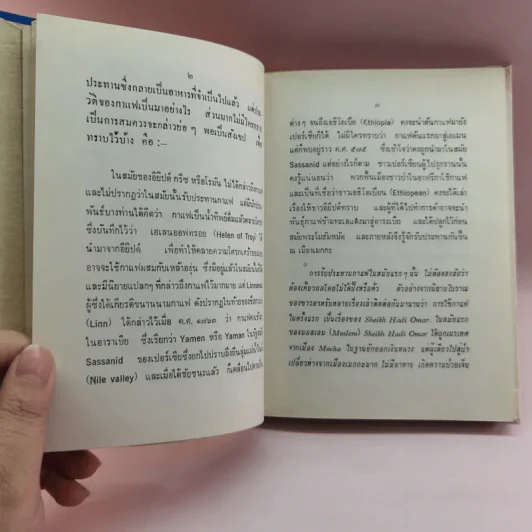 ๒
ประทานซึ่งกลายเป็นอาหารที่จำเป็นไปแล้ว แต่ประ
วัติของกาแฟเป็นมาอย่างไร ส่วนมากไม่มีใครทราบ
เป็นการสมควรจะกล่าวย่อ ๆ พอเป็นสังเขป เพื่อ
ทราบไว้บ้าง คือ :–
ในสมัยของอียิปต์ กรีซ หรือโรมัน ไม่ได้กล่าวถึงกาแฟ
และไม่ปรากฏว่าในสมัยนั้นรับประทานกาแฟ แต่มีนัก
พันธุ์บางท่านได้คิดว่า กาแฟเป็นน้ำทิพย์ดื่มแล้ว
ซึ่งบันทึกไว้ว่า เฮเลนออฟทรอย (Helen of Troy) ได้
นำมาจากอียิปต์ เพื่อทำให้คลายความโศกเศร้า
อาจจะใช้กาแฟผสมกับเหล้าองุ่น ซึ่งมีอยู่แล้วในสมัยนั้น
และมีนิยายแปลก ๆ ที่กล่าวถึงกาแฟไว้มากมาย แต่ Linnaeus
ผู้ซึ่งได้เกียรติขนานนามกาแฟ ดังปรากฏในท้ายของชื่อ
(Linn) ได้กล่าวไว้เมื่อ ค.ศ. ๑๗๕๓ ว่า กาแฟ
ในอาราเบีย ซึ่งเรียกว่า Yamen หรือ Yaman ใน
Sassanid ของเปอร์เซียซึ่งยกไปปราบถึงลุ่มแม่น้ำไนล์
(Nile valley) และเมื่อได้ชัยชนะแล้ว ก็เคลื่อนไป
๓
ต่าง ๆ จนถึงเอธิโอเปีย (Ethiopia) คงจะนำต้นกาแฟมายัง
เปอร์เซียก็ได้ ไม่มีใครทราบว่า กาแฟต้นแรกมาสู่เยเมน
แต่ก็พบอยู่ราว ค.ศ. ๕๗๕ ซึ่งเข้าใจว่าคงถูกนำมาในสมัย
Sassanid แต่อย่างไรก็ตาม ชาวเปอร์เซียนผู้ไปรุกรานนั้น
คงรู้แน่นอนว่า พวกพื้นเมืองชาวป่าในอาฟริกาใช้กาแฟ
และเป็นที่เชื่อว่าชาวเอธิโอเปียน (Ethiopean) คงจะได้เล่า
เรื่องให้ชาวอียิปต์ทราบ และผู้ที่ได้ไปทำการค้าอาจจะนำ
พันธุ์กาแฟข้ามทะเลแดงมาสู่อารเบีย และได้ปลูกไว้ก่อน
สมัยพระโมฮัมหมัด และภายหลังจึงรู้จักรับประทานกันขึ้น
ณ เมืองเมกกะ
การรับประทานกาแฟในสมัยแรก ๆ นั้น ไม่ต้องสงสัยว่า
ต้องเคี้ยวผลโดยไม่ได้ปิ้งหรือคั่ว ตัวอย่างจากนิยายโบราณ
ของชาวอาหรับหลายเรื่องเล่าติดต่อกันมานานว่า การใช้กาแฟ
ในครั้งแรก เป็นเรื่องของ Sheikh Hadi Omar. ในสมัยแรก
ของมอสเลม (Moslem) Sheikh Hadi Omar ได้ถูกเนรเทศ
จากเมือง Mocha ในฐานยักยอกเงินหลวง แต่ผู้เดียวไปสู่ป่า
เปลี่ยวห่างจากเมืองเมกกะมาก ไม่มีอาหาร เกิดความป่วยเจ็บ